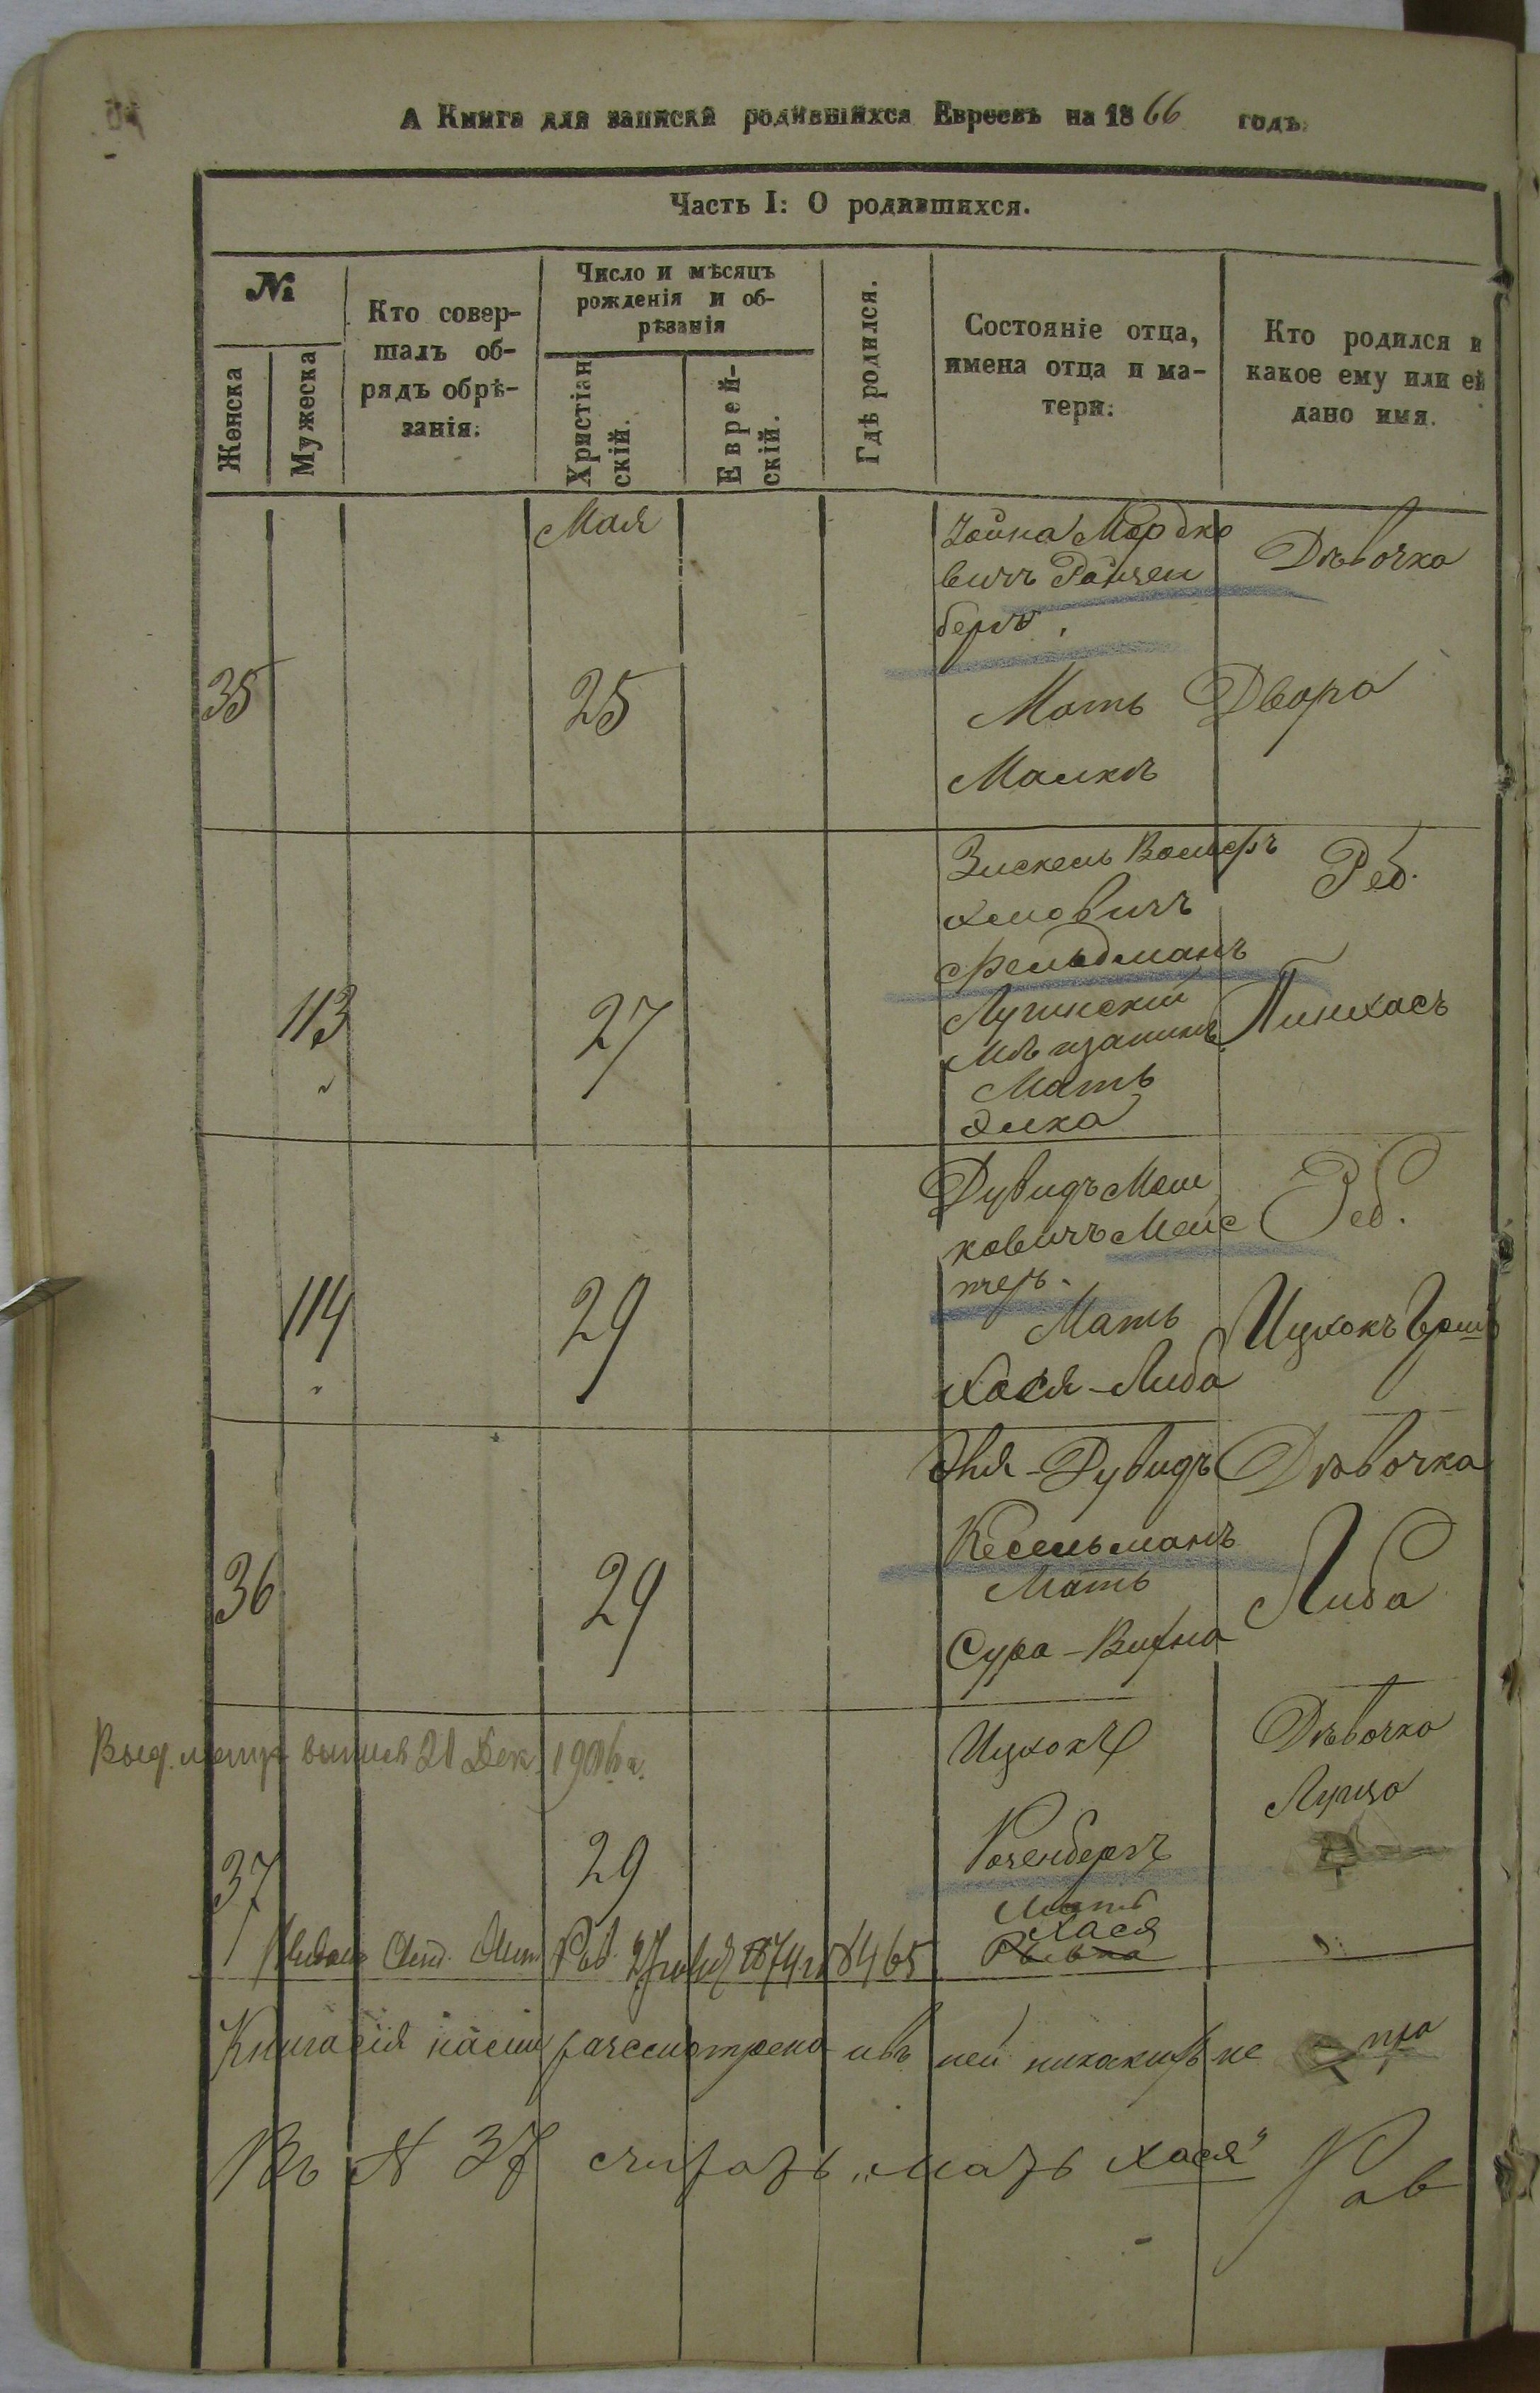 А Книга для записки родившихся Евреевъ на 1866 годъ.
Часть I: О родившихся.
№
Женска
Мужеска
Кто совер-
шалъ об-
рядъ обрѣ-
занія.
Число и мѣсяцъ
рожденія и об-
рѣзанія
Христіан
скій.
Еврей-
скій.
Гдѣ родился.
Состояніе отца,
имена отца и ма-
тери.
Кто родился и
какое ему или ей
дано имя.
Мая
35
25
Мордко
вичъ
бергъ.
Мать
Дѣвочка
Двора
113
27
Зискель
Фельдманъ
Лугинскій
мѣщанинъ
Мать
Реб.
Пинхасъ
114
29
Дувидъ Мош
ковичъ Мейс
теръ.
Мать
Хася-Либа
Реб.
Ицхокъ Герш
36
29
Дувидъ
Кесельманъ
Мать
Сура-
Дѣвочка
Либа
Выд. метр. выпись 21 Дек. 1906 г.
37
29
Ицхокъ
Розенбергъ
Мать
Хася
Ривка
Дѣвочка
1874 г. 8465
Книга сія нами разсмотрена и въ ней никакихъ не
Въ № 37 считать „мать Хася"
Рав